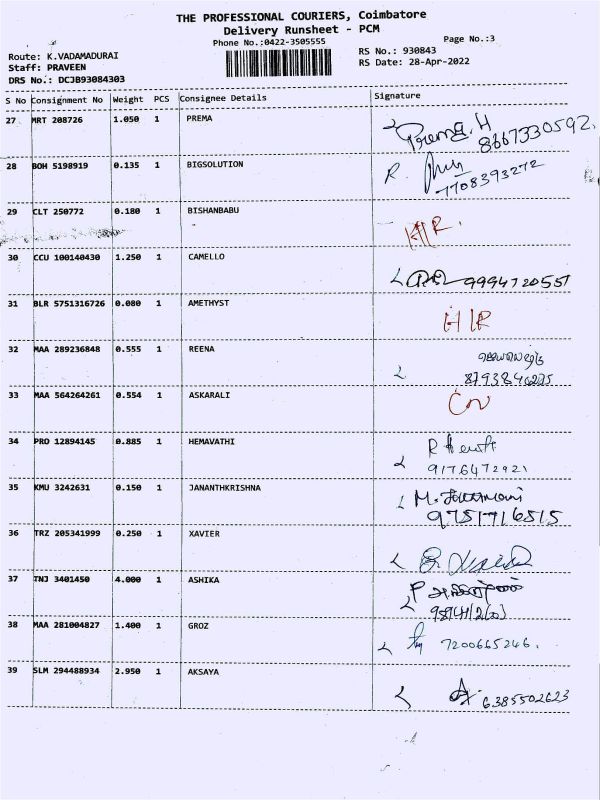 THE PROFESSIONAL COURIERS, Coimbatore
Delivery Runsheet - PCM
Phone No.:0422-3505555
Page No.:3
Route: K.VADAMADURAI
Staff: PRAVEEN
DRS No.: DCJB93084303
RS No.: 930843
RS Date: 28-Apr-2022
S No Consignment No Weight PCS Consignee Details Signature
27 MRT 208726 1.050 1 PREMA Prema. H
8667330592.
28 BOH 5198919 0.135 1 BIGSOLUTION R.
7708393272
29 CLT 250772 0.180 1 BISHANBABU H/R.
30 CCU 100140430 1.250 1 CAMELLO 9994720551
31 BLR 5751316726 0.080 1 AMETHYST H/R
32 MAA 289236848 0.555 1 REENA
33 MAA 564264261 0.554 1 ASKARALI
34 PRO 12894145 0.885 1 HEMAVATHI
9176472921
35 KMU 3242631 0.150 1 JANANTHKRISHNA
9751716515
36 TRZ 205341999 0.250 1 XAVIER
37 TNJ 3401450 4.000 1 ASHIKA
38 MAA 281004827 1.400 1 GROZ 7200665246.
39 SLM 294488934 2.950 1 AKSAYA 6385502623